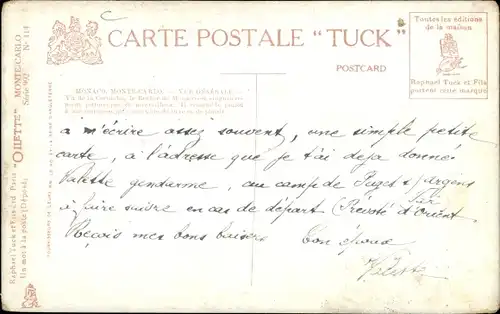 CARTE POSTALE "TUCK"
POSTCARD
Toutes les éditions
de la maison
Raphael Tuck et Fils
portent cette marque
MONACO, MONTE-CARLO. — VUE GÉNÉRALE.
"OILETTE" MONTE-CARLO
Série 912 Nº 114
Raphael Tuck et Fils Ltd Paris
Un mot à la poste (Déposé)
à m'écrire assez souvent, une simple petite
carte, à l'adresse que je t'ai deja donné.
Valette gendarme, au camp de Puget s/ argens
Var
à faire suivre en cas de départ (Prévoté d'Orient.
Reçois mes bons baisers Ton époux
Valette